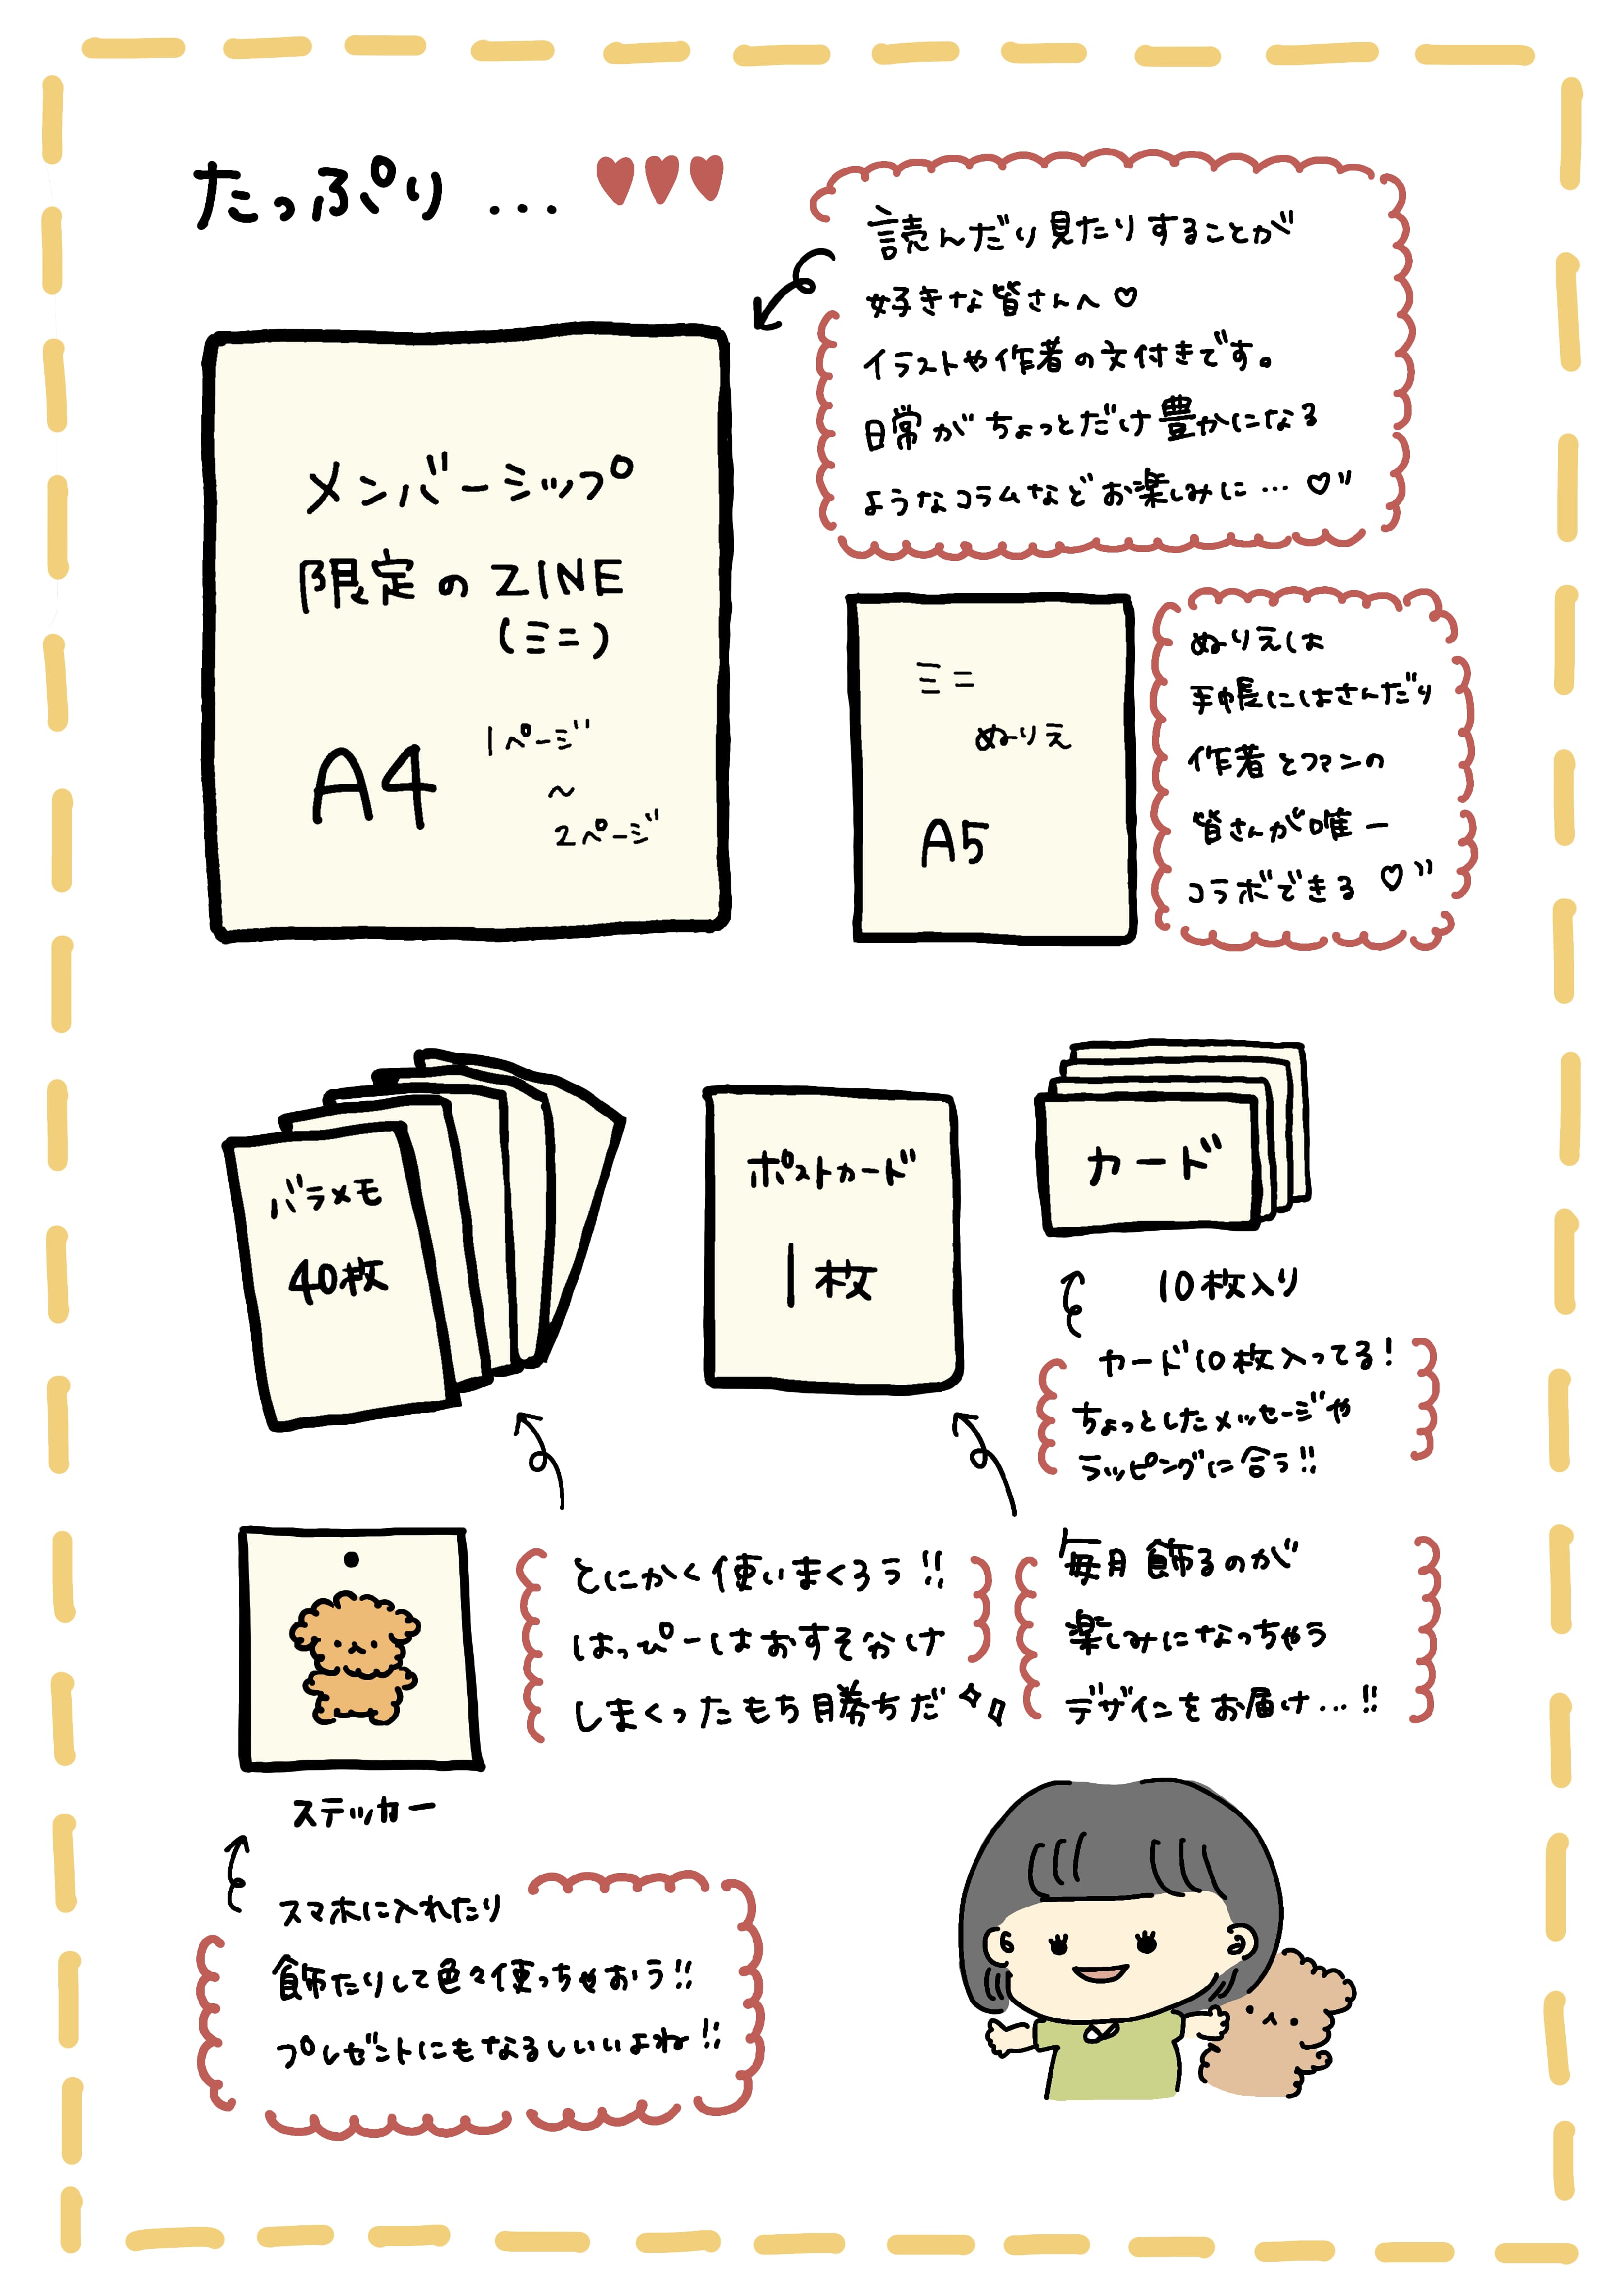 たっぷり ... ♥♥♥
読んだり見たりすることが
好きな皆さんへ♡
イラストや作者の文付きです。
日常がちょっとだけ豊かになる
ようなコラムなどお楽しみに…♡"
メンバーシップ
限定のZINE
(ミニ)
A4
1ページ
~
2ページ
ミニ
ぬりえ
A5
ぬりえは
手帳にはさんだり
作者とファンの
皆さんが唯一
コラボできる♡"
バラメモ
40枚
ポストカード
1枚
カード
10枚入り
カード10枚入ってる!
ちょっとしたメッセージや
ラッピングに合う!!
とにかく使いまくろう!!
はっぴーはおすそ分け
しまくったもち勝ちだ
毎月飾るのが
楽しみになっちゃう
デザインをお届け…!!
ステッカー
スマホに入れたり
飾たりして色々使っちゃおう!!
プレゼントにもなるしいいよね!!